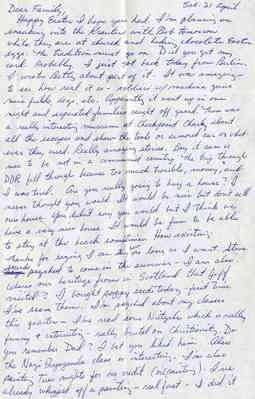 Sat. 21 April
Dear Family,
Happy Easter. I hope you had. I'm planning on
sneaking into the Krauter's with Bert tomorrow
while they are at church and hiding chocolate Easter
eggs. The tradition must go on. Did you get my
card. Probably. I just got back today from Berlin.
I wrote Betty about part of it. It was amazing -
to see how real it is - soldiers w/ machine guns
mine fields, dogs, etc. Apparently it went up in one
night and separated families right off guard. There was
a really interesting museum at Checkpoint Charly about
all the escapes and show the tools or armored car or what
ever they used. Really amazing stories. Boy it sure is
nice to be not in a communist country. The trip through
DDR fell through because too much trouble, money, and
I was tired. Are you really going to buy a house? I
never thought you would. It would be nice but don't sell
our house. You didn't say you would but I think we
have a very nice house. It would be fun to be able
to stay at the beach sometimes. How exciting.
Thanks for saying I can stay as long as I want. Steve
psyched to come in the summer. - I am also
Where was our heritage from in Scotland that Jeff
visited? I bought poppy seeds today - first time
I've seen them. I'm psyched about my classes
this quarter - I've read some Nietzsche which is really
funny & interesting - really brutal on Christianity. Do
you remember Dad? I bet you liked him. Also
the Nazi Propaganda class is interesting. I'm also
painting two nights for no credit (oil painting). I've
already whipped off a painting - real fast - I did it